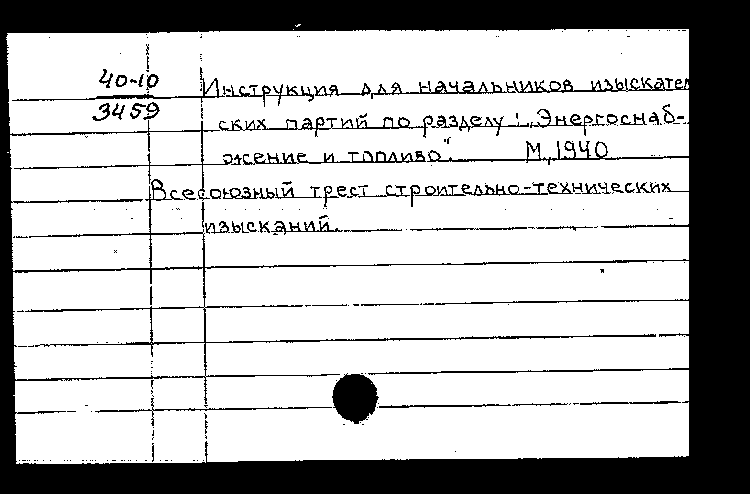 40-10
3459
Инструкция для начальников изыскател
ских партий по разделу: „Энергоснаб-
жение и топливо". М., 1940
Всесоюзный трест строительно-технических
изысканий.